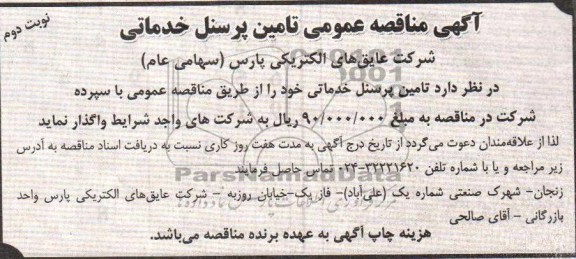 نوبت دوم
آگهی مناقصه عمومی تامین پرسنل خدماتی
شرکت عایق‌های الکتریکی پارس (سهامی عام)
در نظر دارد تامین پرسنل خدماتی خود را از طریق مناقصه عمومی با سپرده
شرکت در مناقصه به مبلغ ۹۰/۰۰۰/۰۰۰ ریال به شرکت های واجد شرایط واگذار نماید
لذا از علاقه‌مندان دعوت می‌گردد از تاریخ درج آگهی به مدت هفت روز کاری نسبت به دریافت اسناد مناقصه به آدرس
زیر مراجعه و یا با شماره تلفن ۳۲۲۲۱۶۲۰-۰۲۴ تماس حاصل فرمایند
زنجان- شهرک صنعتی شماره یک (علی‌آباد)- فاز یک-خیابان روزبه – شرکت عایق‌های الکتریکی پارس واحد
بازرگانی - آقای صالحی
هزینه چاپ آگهی به عهده برنده مناقصه می‌باشد.
ParsNamadData